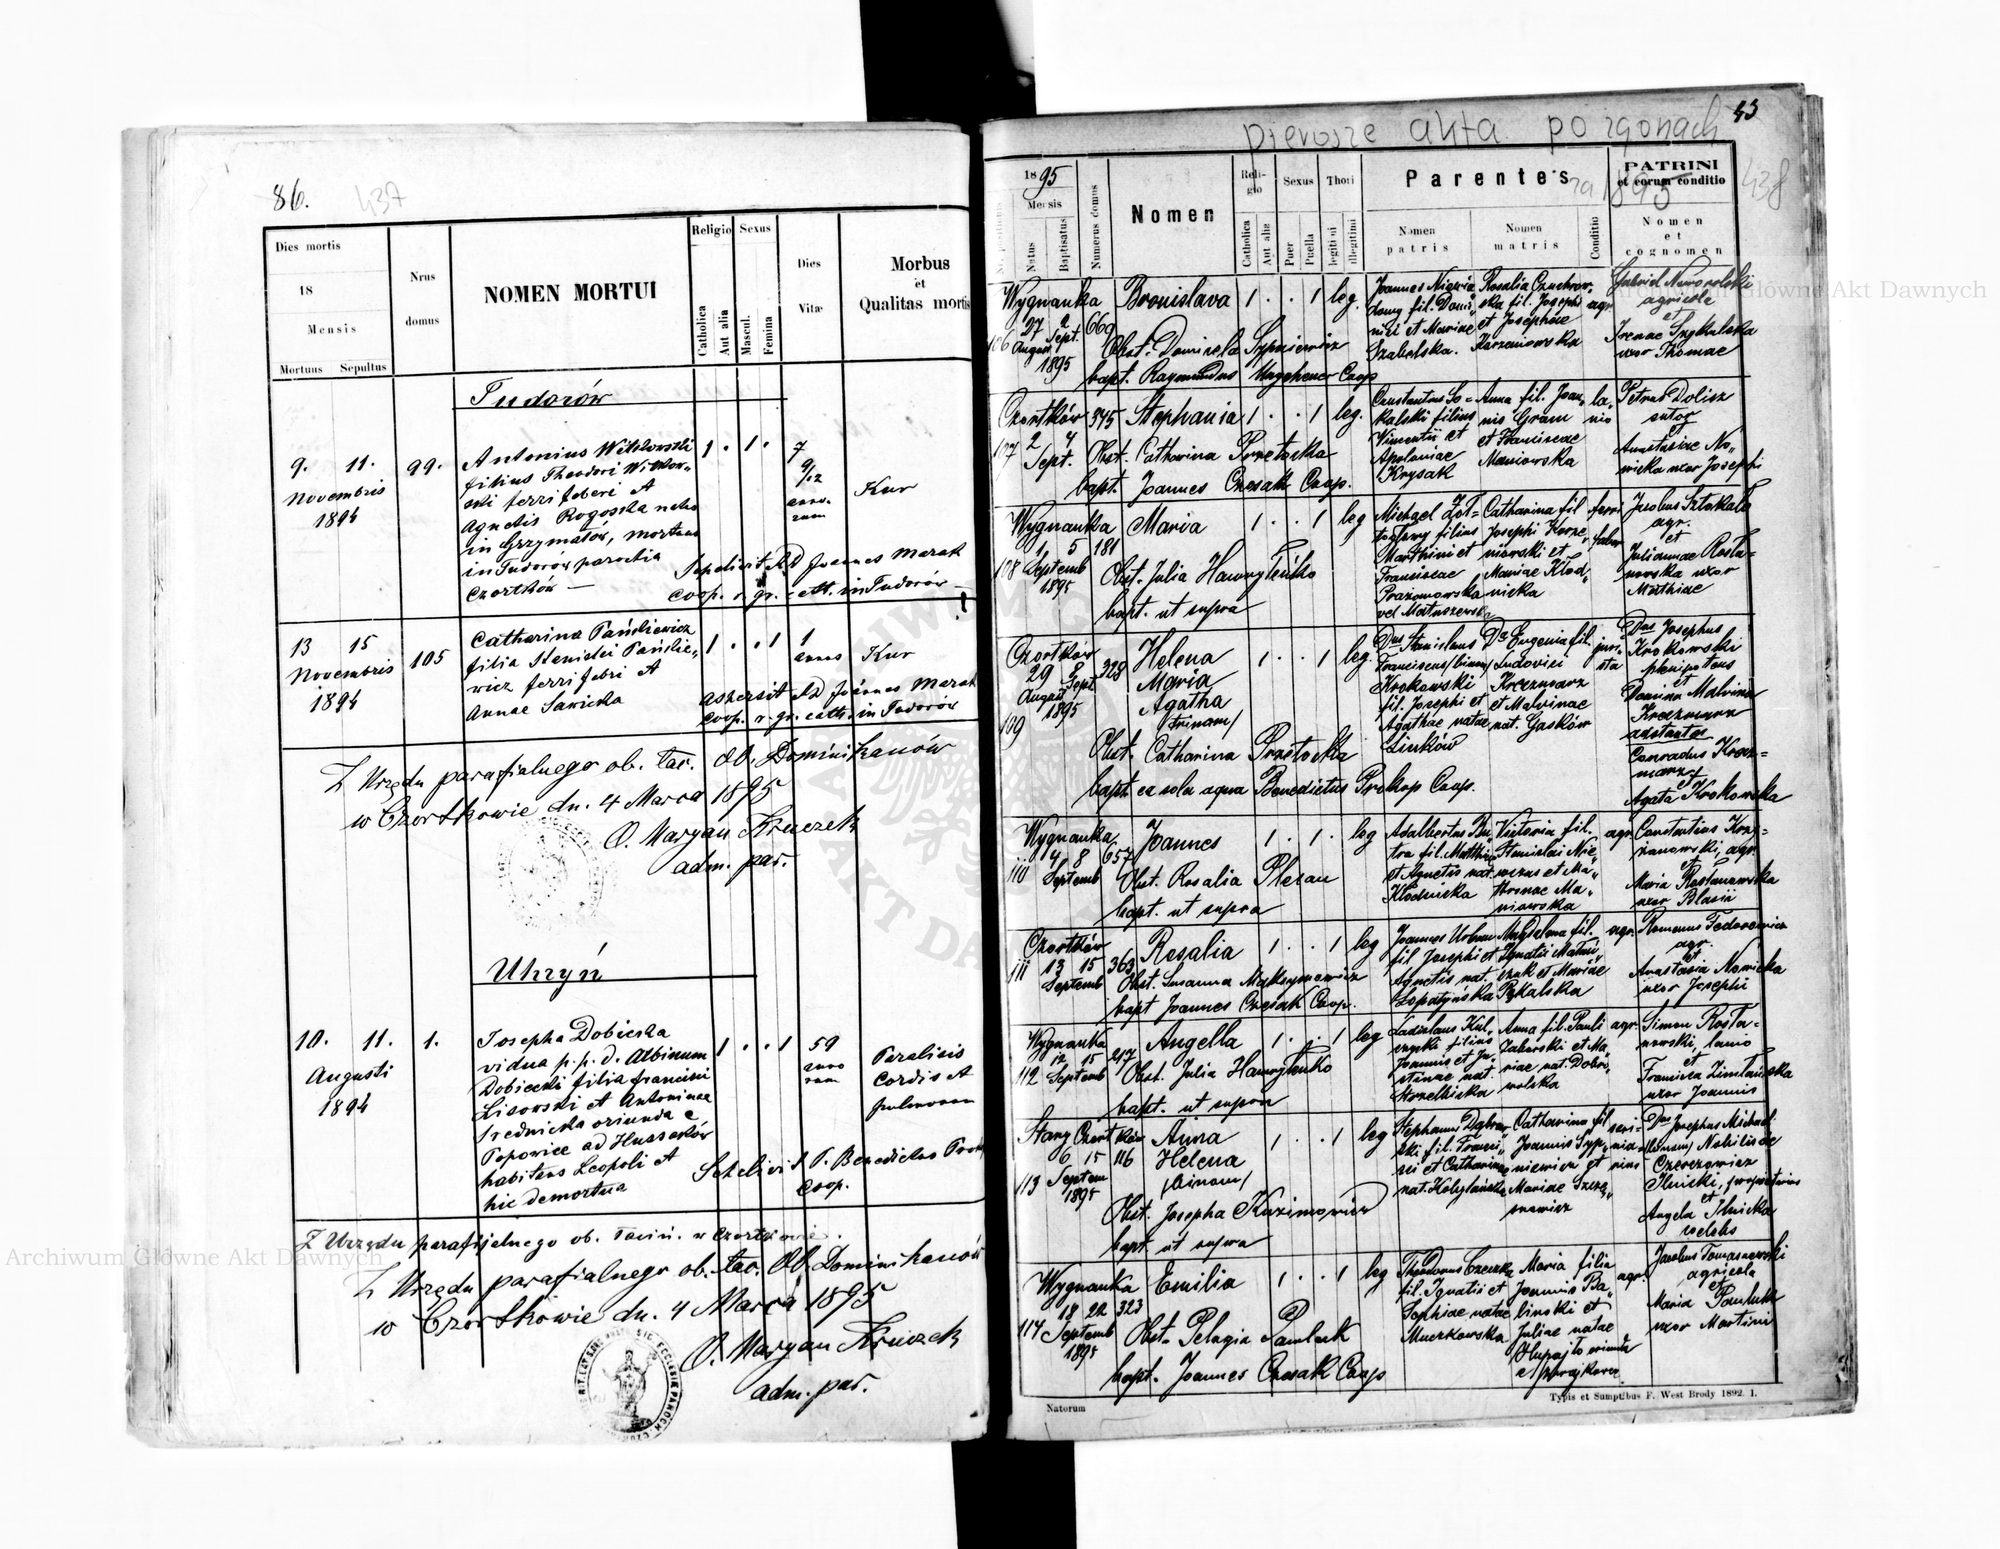 86.
437
Dies mortis
18
Mensis
Mortuus Sepultus
Nrus
domus
NOMEN MORTUI
Religio
Catholica
Aut alia
Sexus
Mascul.
Femina
Dies
Vitæ
Morbus
et
Qualitas mortis
Tudorów
9. 11.
Novembris
1894
99.
Antonius Witkowski
filius Theodori Witkow„
ski ferri fabri et
Agnetis Rogoska natus
in Grzymałów, mortuus
in Tudorów parochia
Czortków —
1 . 1 .
7
9/12
anno„
rum
Kur
Sepelivit AD Joannes Marak
coop. r. gr. cath. in Tudorów —
13 15
Novembris
1894
105
Catharina Pańkiewicz
filia Stanislai Pańkie„
wicz ferri fabri et
Annae Sawicka
1 . . 1
1
annus
Kur
assersit AD Joannes Marak
coop. r. gr. cath. in Tudorów
Z Urzędu parafialnego ob. łac. OO. Dominikanów
w Czortkowie dn. 4 Marca 1895
O. Maryan Kruczek
adm. par.
Uhryń
10. 11.
Augusti
1894
1.
Josepha Dobiecka
vidua p. p. d. Albinum
Dobiecki filia Francisci
Lisowski et Antoninae
Średnicka oriunda e
Popowice ad Hussaków
habitans Leopoli et
hic demortua
1 . . 1
59
anno
rum
Paralisis
cordis et
pulmonum
Sepelivit P. Benedictus
coop.
Z Urzędu parafijalnego ob. łaciń. w Czortkowie.
Z Urzędu parafialnego ob. łac. OO. Dominikanów
w Czortkowie dn. 4 Marca 1895
O. Maryan Kruczek
adm. par.
43
pierwsze akta po zgonach
za 1895
438
1895
Mensis
Natus
Baptisatus
Numerus domus
Nomen
Religio
Catholica
Aut alia
Sexus
Puer
Puella
Thori
legitimi
illegitimi
Parentes
Nomen
patris
Nomen
matris
Conditio
PATRINI
et eorum conditio
Nomen
et
cognomen
Wygnanka
27 2
August Sept.
1895
106
669
Bronislava
1 . . 1 leg.
Szabelska.
Rosalia Czuchrow„
ska fil. Josephi
et Josephae
Karzanowska
agr.
Gabriel Naworolski
agricola
et
Irenae Szykulska
uxor Thomae
Obst. Dominela Sypniewicz
bapt. Raymundus Ungeheuer Coop
Czortków
2 4
Sept.
107
345
Stephania
1 . . 1 leg.
Constantinus So=
kalski filius
Vincentii et
Apoloniae
Krysak
Anna fil. Joan„
nis Gram
et Franciscae
Maniowska
la„
nio
Petrus Dolisz
sutor
et
Anastasiae No„
wicka uxor Josephi
Obst. Catharina Przetocka
bapt. Joannes Czesak Coop.
Wygnanka
1 5
Septemb
1895
108
181
Maria
1 . . 1 leg
Marthini et
Franciscae
vel Matuszewska
Catharina fil
Josephi Korze„
niowski et
Mariae Kłod„
nicka
ferri
faber
agr.
et
Julianna Rosta=
nowska uxor
Mathiae
Obst. Julia Hawryleńko
bapt. ut supra
Czortków
29 8
August Sept.
1895
109
328
Helena
Maria
Agatha
/trinam/
1 . . 1 leg.
Dnus Stanislaus
Franciscus /binom/
Krokowski
fil. Josephi et
Agathae natae
Linków
Da Eugenia fil.
Ludovici
Kreczmarz
et Malvinae
nat. Gasków
juri„
sta
Dnus Josephus
Krokowski
plenipotens
et
Domina Malvina
Kreczmarz
adstantes
Conradus Krecz=
marz
et
Agata Krokowska
Obst. Catharina Przetocka
bapt. ex sola aqua Benedictus Prokop Coop.
Wygnanka
4 8
Septemb
110
657
Joannes
1 . 1 . leg
Adalbertus Bu„
tra fil. Matthiae
et Agnetis nat.
Kłodnicka
Victoria fil.
Stanislai Nie„
wczas et Ma„
thronae Ma„
niowska
agr.
Constantinus Krzy=
żanowski, agr.
et
Maria Rostanowska
uxor Blasii
Obst. Rosalia Plezan
bapt. ut supra
Czortków
13 15
Septemb
111
363
Rosalia
1 . . 1 leg
Joannes Urban
fil Josephi et
Agnetis nat.
Łopatyńska
Magdalena fil.
Ignatii Matwij„
czak et Mariae
Pękalska
agr.
Romanus Fedorowicz
agr.
et
Anastasia Nowicka
uxor Josephi
Obst. Susanna Maksymowicz
bapt Joannes Czesak Coop.
Wygnanka
12 15
Septemb
112
217
Angella
1 . . 1 leg
Ladislaus Kul„
czycki filius
Joannis et Ju„
stinae nat.
Strzelbicka
Anna fil. Pauli
Jaborski et Ma„
riae nat. Dobro„
wolska
agr.
Simon Rosta=
nowski, lanio
et
uxor Joannis
Obst. Julia Hawryleńko
bapt. ut supra
Stary Czortków
6 15
Septem
1895
113
116
Anna
Helena
/binam/
1 . . 1 leg
Stephanus Dąbrow„
ski fil. Franci„
sci et Catharinae
nat. Kobylańska
Catharina fil
Joannis Syp„
niewicz et
Mariae Szcze„
panowicz
Dnus Josephus Michael
/binom/ Nobilis de
Czereszowicz
Ilnicki, proprietarius
et
Angela Ilnicka
coelebs
Obst. Josepha Kazimowicz
bapt. ut supra
Wygnanka
18 22
Septemb
1895
114
323
Emilia
1 . . 1 leg
Theodorus Czeczka
fil. Ignatii et
Sophiae natae
Muczkowska
Maria filia
Joannis Ba„
linski et
Juliae natae
agr.
Jacobus Tomaszewski
agricola
et
Maria Pawluk
uxor Martini
Obst. Pelagia Pawluk
bapt. Joannes Czesak Coop
Natorum
Typis et Sumptibus F. West Brody 1892. 1.
Archiwum Główne Akt Dawnych